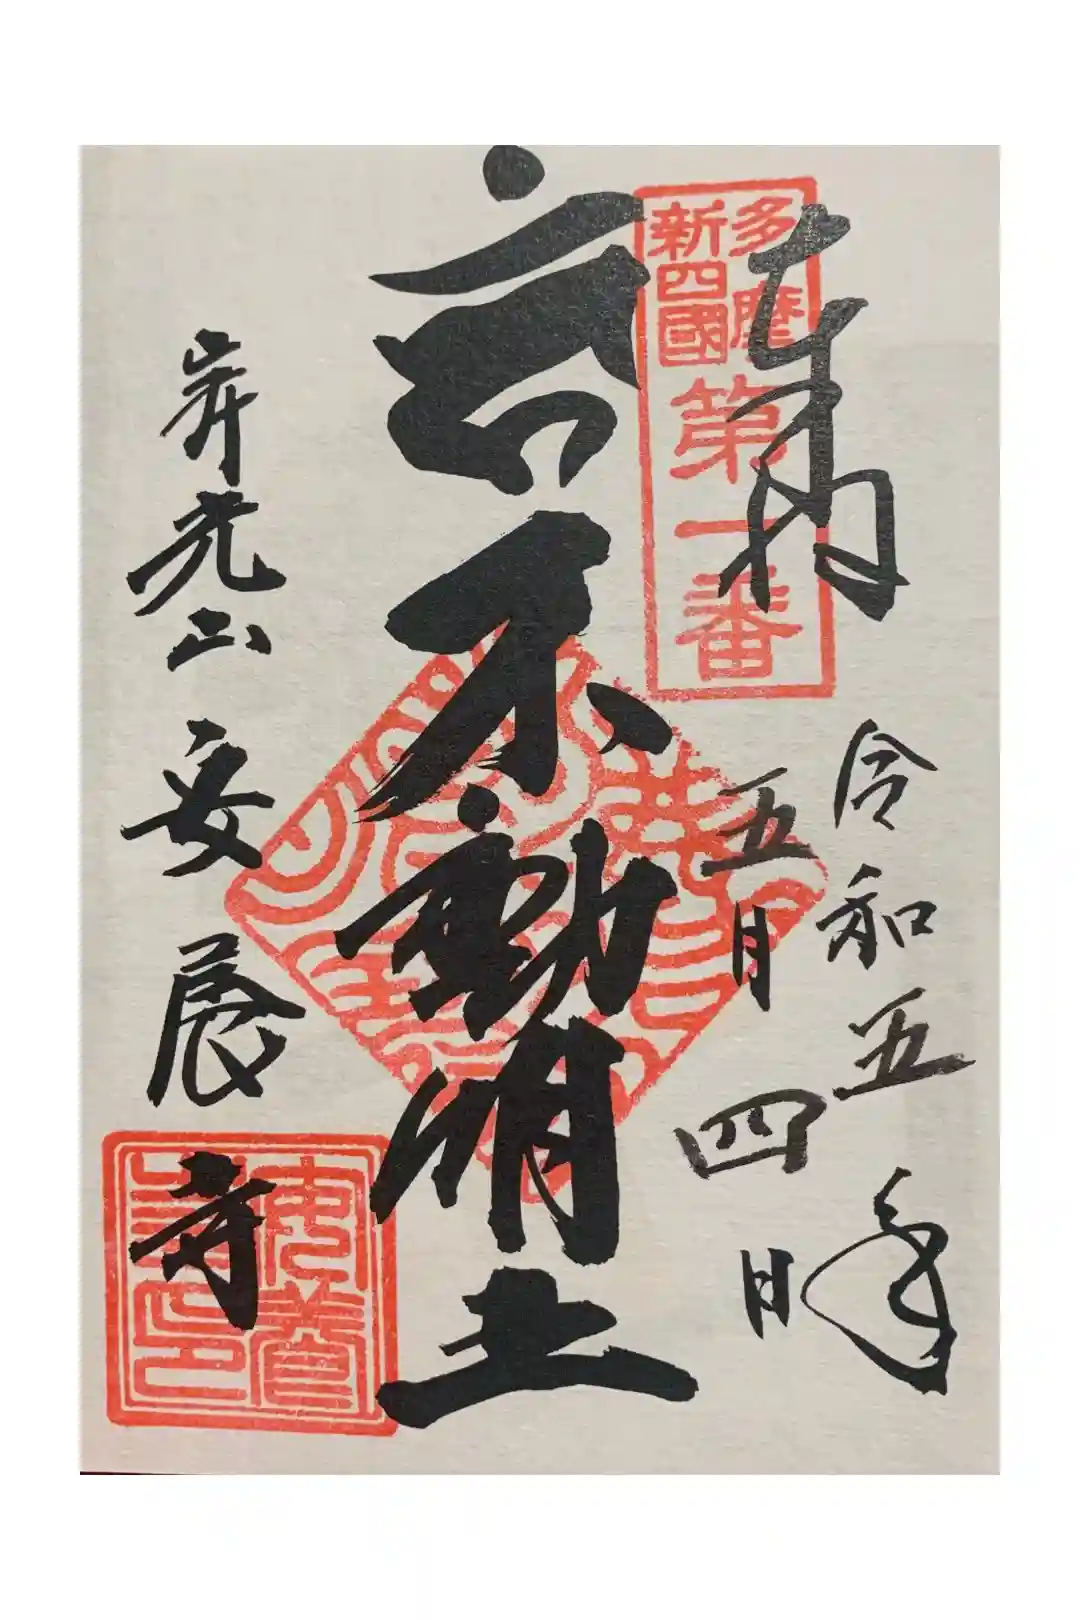 奉拝
多摩
新四國
第一番
令和五年
五月四日
不動明王
光山 安養寺